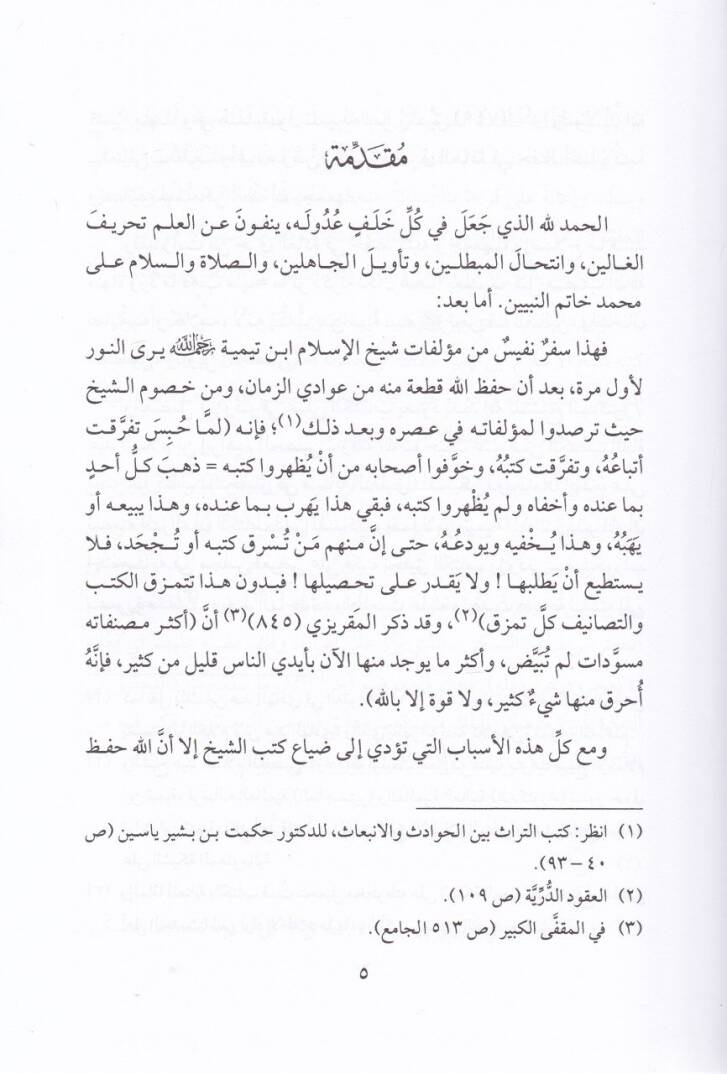 مُقَدِّمَة
الحمد لله الذي جَعَلَ في كُلِّ خَلَفٍ عُدُولَه، ينفونَ عن العلم تحريفَ
الغالين، وانتحالَ المبطلين، وتأويلَ الجاهلين، والصلاة والسلام على
محمد خاتم النبيين. أما بعد:
فهذا سفرٌ نفيسٌ من مؤلفات شيخ الإسلام ابن تيمية رَحِمَهُ اللَّهُ يرى النور
لأول مرة، بعد أن حفظ الله قطعة منه من عوادي الزمان، ومن خصوم الشيخ
حيث ترصدوا لمؤلفاته في عصره وبعد ذلك(١)؛ فإنه (لمَّا حُبِسَ تفرَّقت
أتباعُهُ، وتفرَّقت كتبُهُ، وخوَّفوا أصحابه من أنْ يُظهروا كتبه = ذهبَ كلُّ أحدٍ
بما عنده وأخفاه ولم يُظْهروا كتبه، فبقي هذا يَهرب بما عنده، وهذا يبيعه أو
يَهَبُهُ، وهذا يُخفيه ويودعُهُ، حتى إنَّ منهم مَنْ تُسْرق كتبه أو تُجْحَد، فلا
يستطيع أنْ يَطلبها! ولا يَقدر على تحصيلها! فبدون هذا تتمزق الكتب
والتصانيف كلَّ تمزق)(٢)، وقد ذكر المَقريزي (٨٤٥)(٣) أنَّ (أكثر مصنفاته
مسوَّدات لم تُبَيَّض، وأكثر ما يوجد منها الآن بأيدي الناس قليل من كثير، فإنَّهُ
أُحرق منها شيءٌ كثير، ولا قوة إلا بالله).
ومع كلِّ هذه الأسباب التي تؤدي إلى ضياع كتب الشيخ إلا أنَّ الله حفظ
(١) انظر: كتب التراث بين الحوادث والانبعاث، للدكتور حكمت بن بشير ياسين (ص
٤٠ – ٩٣).
(٢) العقود الدُّرِّيَّة (ص ١٠٩).
(٣) في المقفَّى الكبير (ص ٥١٣ الجامع).
٥